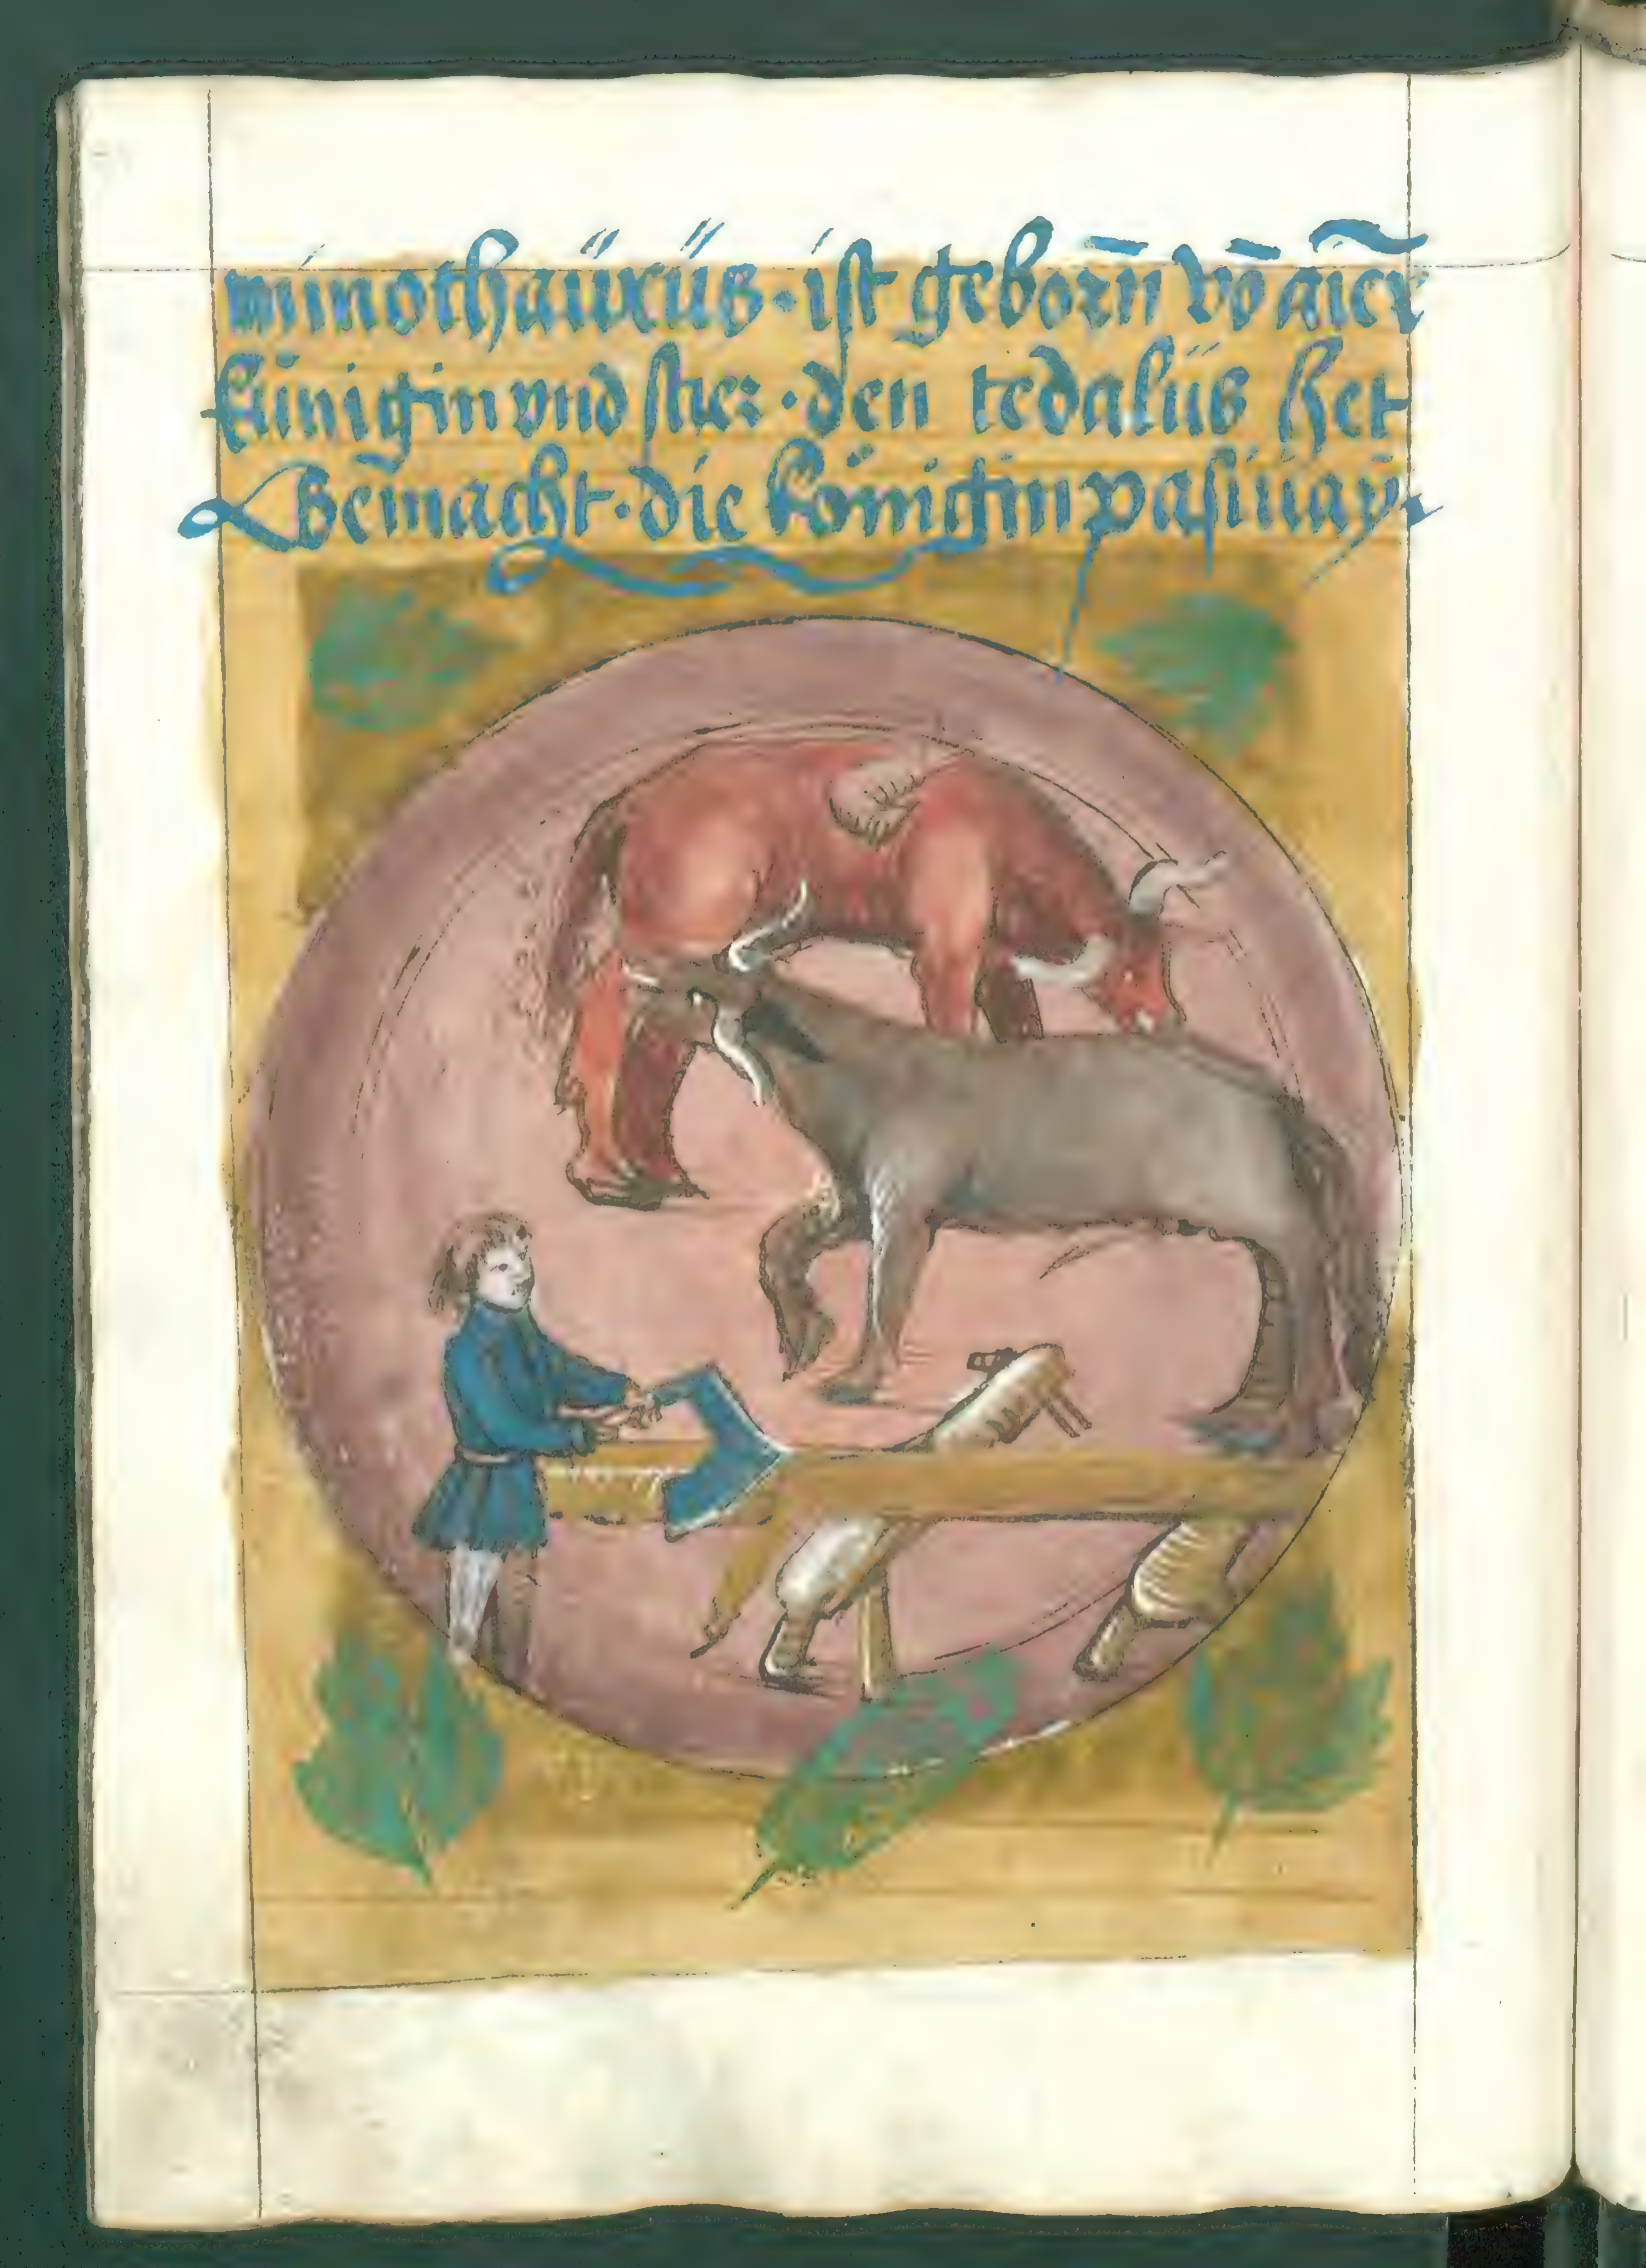 minothaürüs · ist geborn̄ vō aīer
künigin vnd stier · den tedalüs het
Gemacht · die königin pasiuaÿ ·